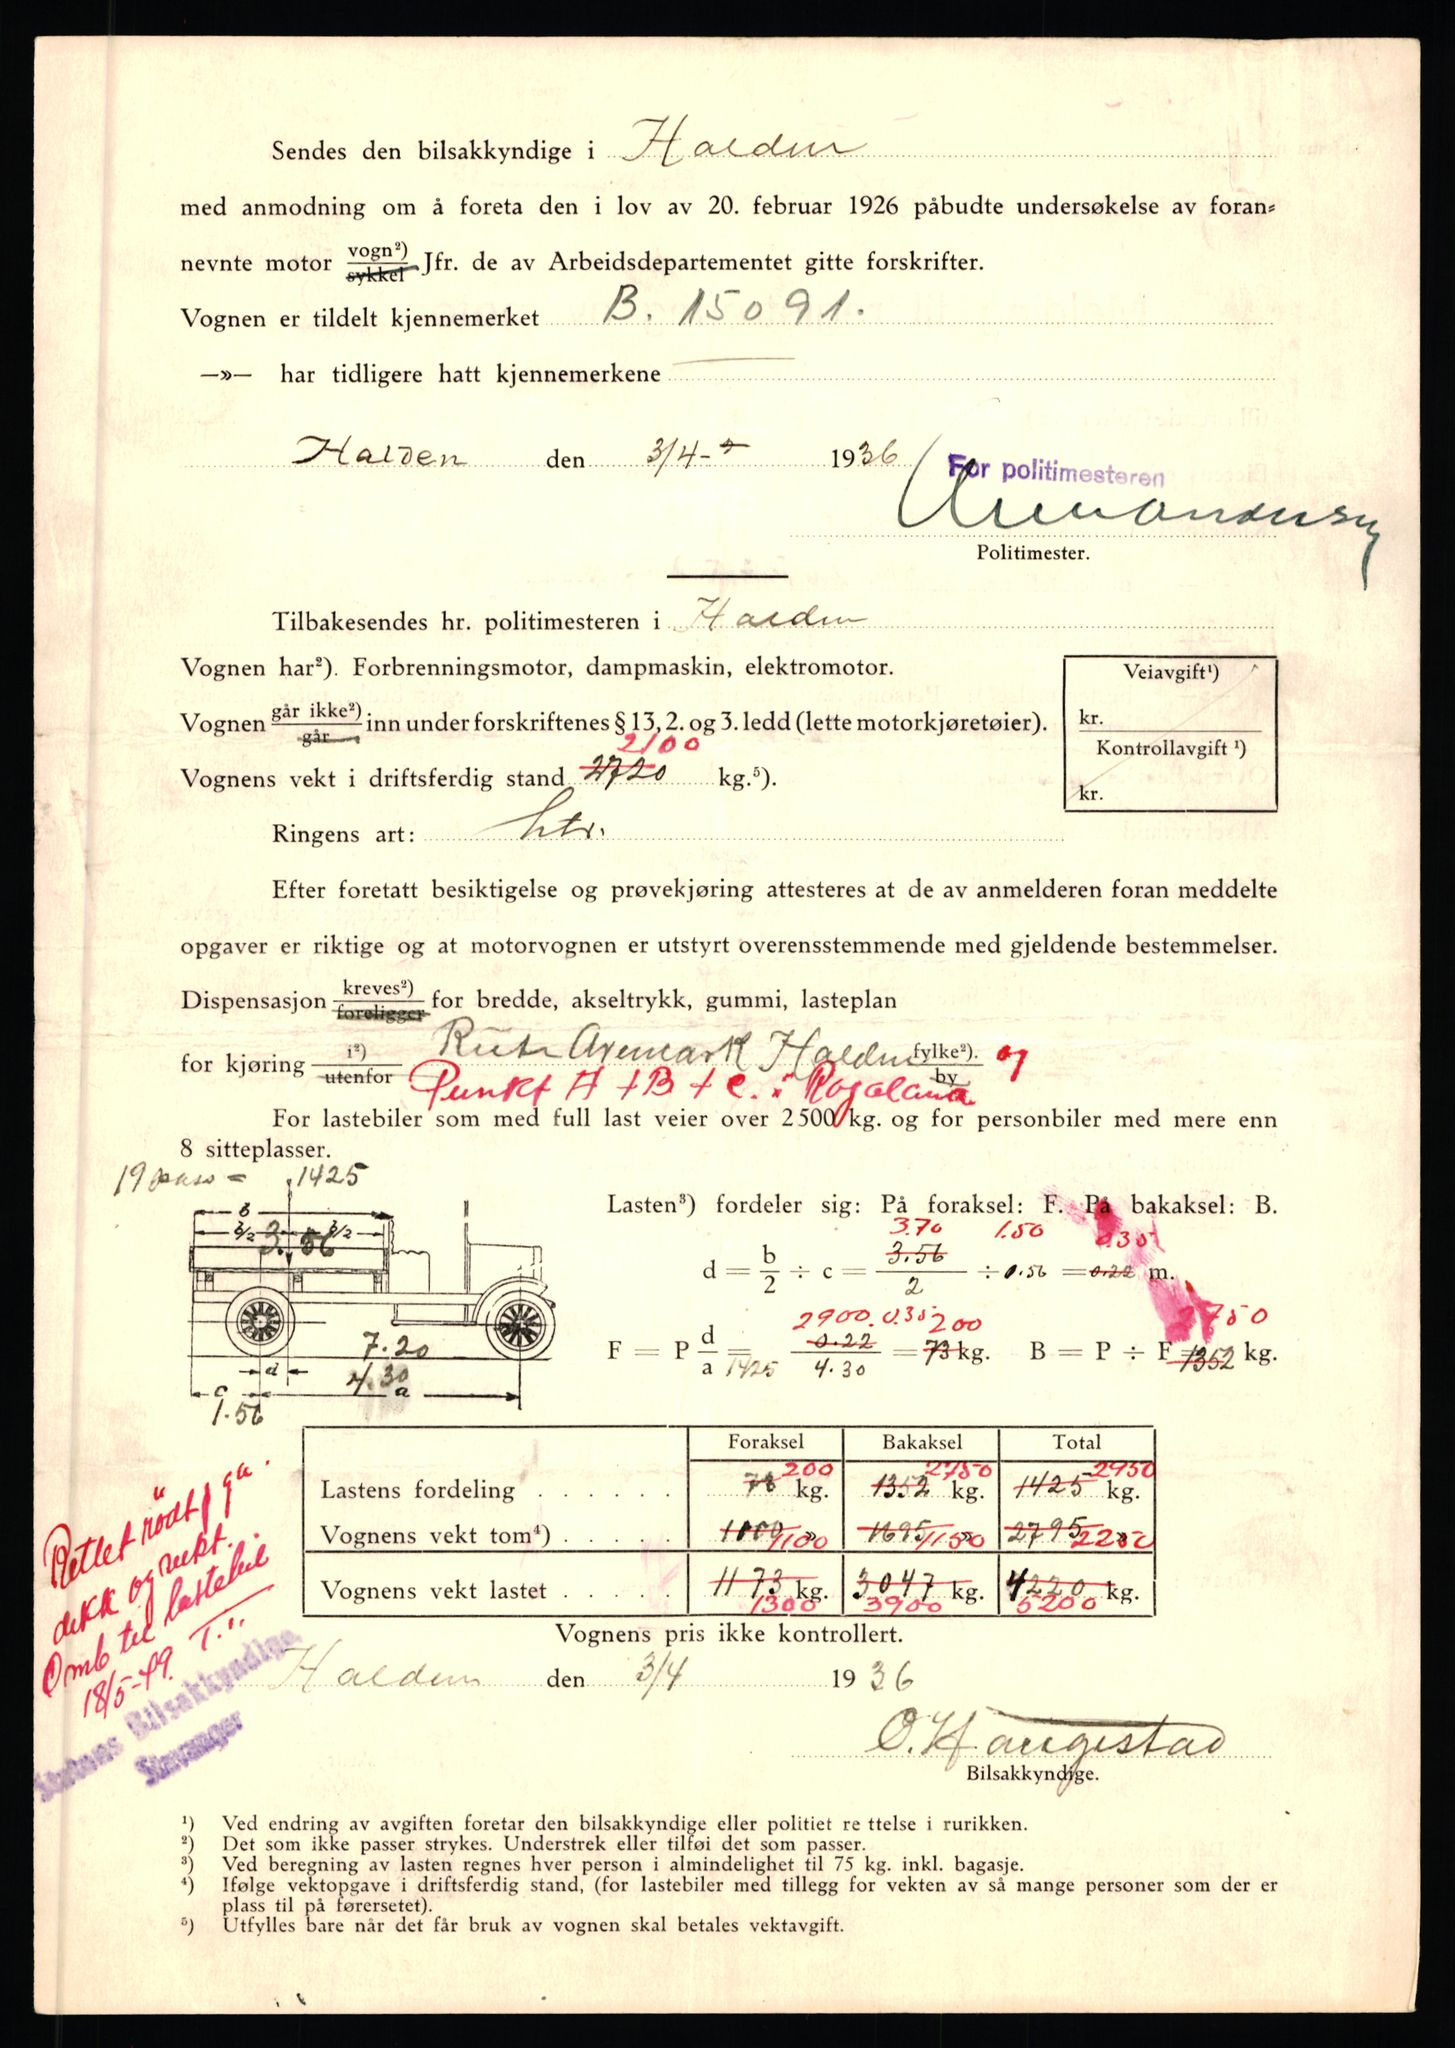 Sendes den bilsakkyndige i Halden
med anmodning om å foreta den i lov av 20. februar 1926 påbudte undersøkelse av foran=
nevnte motor vogn²) sykkel Jfr. de av Arbeidsdepartementet gitte forskrifter.
Vognen er tildelt kjennemerket B. 15091.
—»— har tidligere hatt kjennemerkene
Halden den 3/4- 1936
For politimesteren
Politimester.
Tilbakesendes hr. politimesteren i Halden
Vognen har²). Forbrenningsmotor, dampmaskin, elektromotor.
Veiavgift¹)
kr.
Kontrollavgift ¹)
kr.
Vognen går ikke²) går inn under forskriftenes § 13, 2. og 3. ledd (lette motorkjøretøier).
2100
Vognens vekt i driftsferdig stand 2720 kg.⁵).
Ringens art: Ltr.
Efter foretatt besiktigelse og prøvekjøring attesteres at de av anmelderen foran meddelte
opgaver er riktige og at motorvognen er utstyrt overensstemmende med gjeldende bestemmelser.
Dispensasjon kreves²) foreligger for bredde, akseltrykk, gummi, lasteplan
for kjøring i²) utenfor Ruta Aremark Halden fylke²). by og
Punkt A + B + C. i Rogaland
For lastebiler som med full last veier over 2500 kg. og for personbiler med mere enn
8 sitteplasser.
19 pass = 1425
b
b/2 b/2
3.56
7.20
d 4.30
c a
1.56
Lasten³) fordeler sig: På foraksel: F. På bakaksel: B.
3.70 1.50 0.35
d = b/2 ÷ c = 3.56/2 ÷ 0.56 = 0.22 m.
2900. 0.35 200 2750
F = P d/a = 1425 0.22/4.30 = 73 kg. B = P ÷ F = 1352 kg.
Foraksel Bakaksel Total
200 2750 2950
Lastens fordeling . . . . . . 78 kg. 1352 kg. 1425 kg.
Vognens vekt tom⁴) . . . . . 1000 » 1100 1695 » 1150 2795 » 2250
Vognens vekt lastet . . . . . 1173 kg. 3047 kg. 4220 kg.
1300 3900 5200
Vognens pris ikke kontrollert.
Rettet rødt p ga.
dekk og vekt.
Omb til lastebil
18/5-49. T..
Statens Bilsakkyndige
Stavanger
Halden den 3/4 1936
O. Haugestad
Bilsakkyndige.
¹) Ved endring av avgiften foretar den bilsakkyndige eller politiet re ttelse i rurikken.
²) Det som ikke passer strykes. Understrek eller tilføi det som passer.
³) Ved beregning av lasten regnes hver person i almindelighet til 75 kg. inkl. bagasje.
⁴) Ifølge vektopgave i driftsferdig stand, (for lastebiler med tillegg for vekten av så mange personer som der er
plass til på førersetet).
⁵) Utfylles bare når det får bruk av vognen skal betales vektavgift.